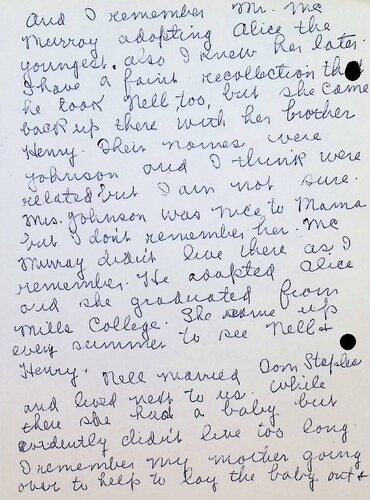 and I remember Mr. Mc
Murray adopting Alice the
youngest. also I knew her later.
I have a faint recollection that
he took Nell too, but she came
back up there with her brother
Henry. Their names were
Johnson and I think were
related but I am not sure.
Mrs. Johnson was nice to Mama
but I don't remember her. Mc
Murray didn't live there as I
remember. He adopted Alice
and she graduated from
Mills College. She came up
every summer to see Nell &
Henry. Nell married Dom Staples
and lived next to us. While
there she had a baby but
evidently didn't live too long.
I remember my mother going
over to help to lay the baby out &